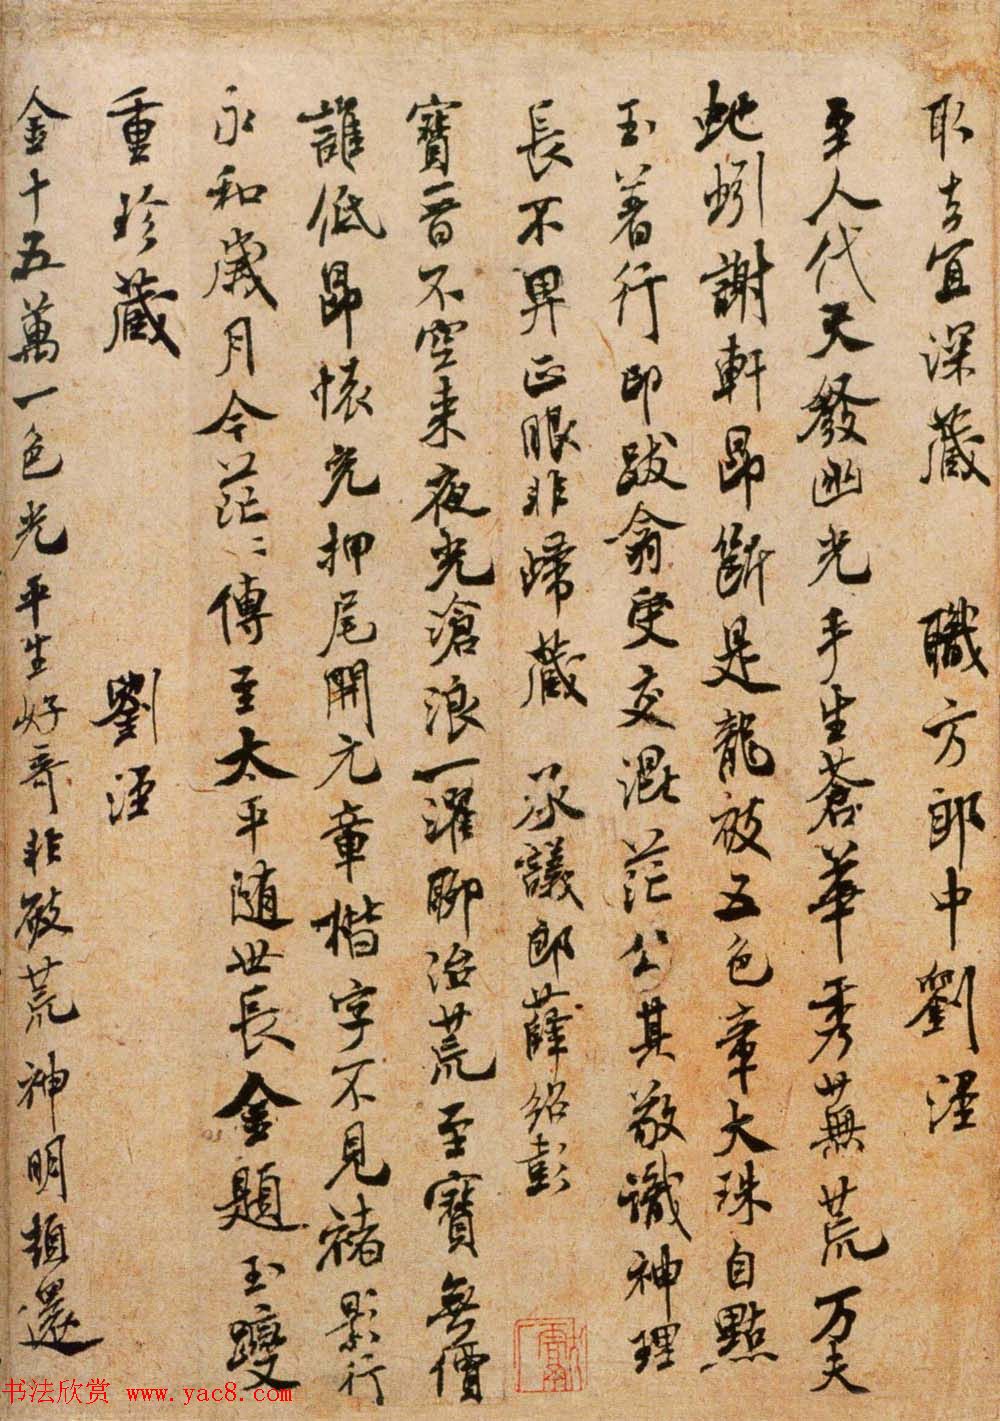 取告宜深藏 職方郎中劉涇
至人代天發幽光手生蒼華秀蕪荒万夫
虵蚓謝軒昂斷是龍被五色章大珠自點
玉著行印跋翕受交混茫公其敬識神理
長不畀正眼非歸藏 承議郎薛紹彭
寶晉不空来夜光滄浪一濯聊治荒至寶無價
誰低昂懐充押尾開元章楷字不見禇影行
永和歲月今茫〻傳至太平随世長金題玉躞
重珍藏 劉涇
金十五萬一色光平生好奇非破荒神明頓還
书法欣赏 www.yac8.com